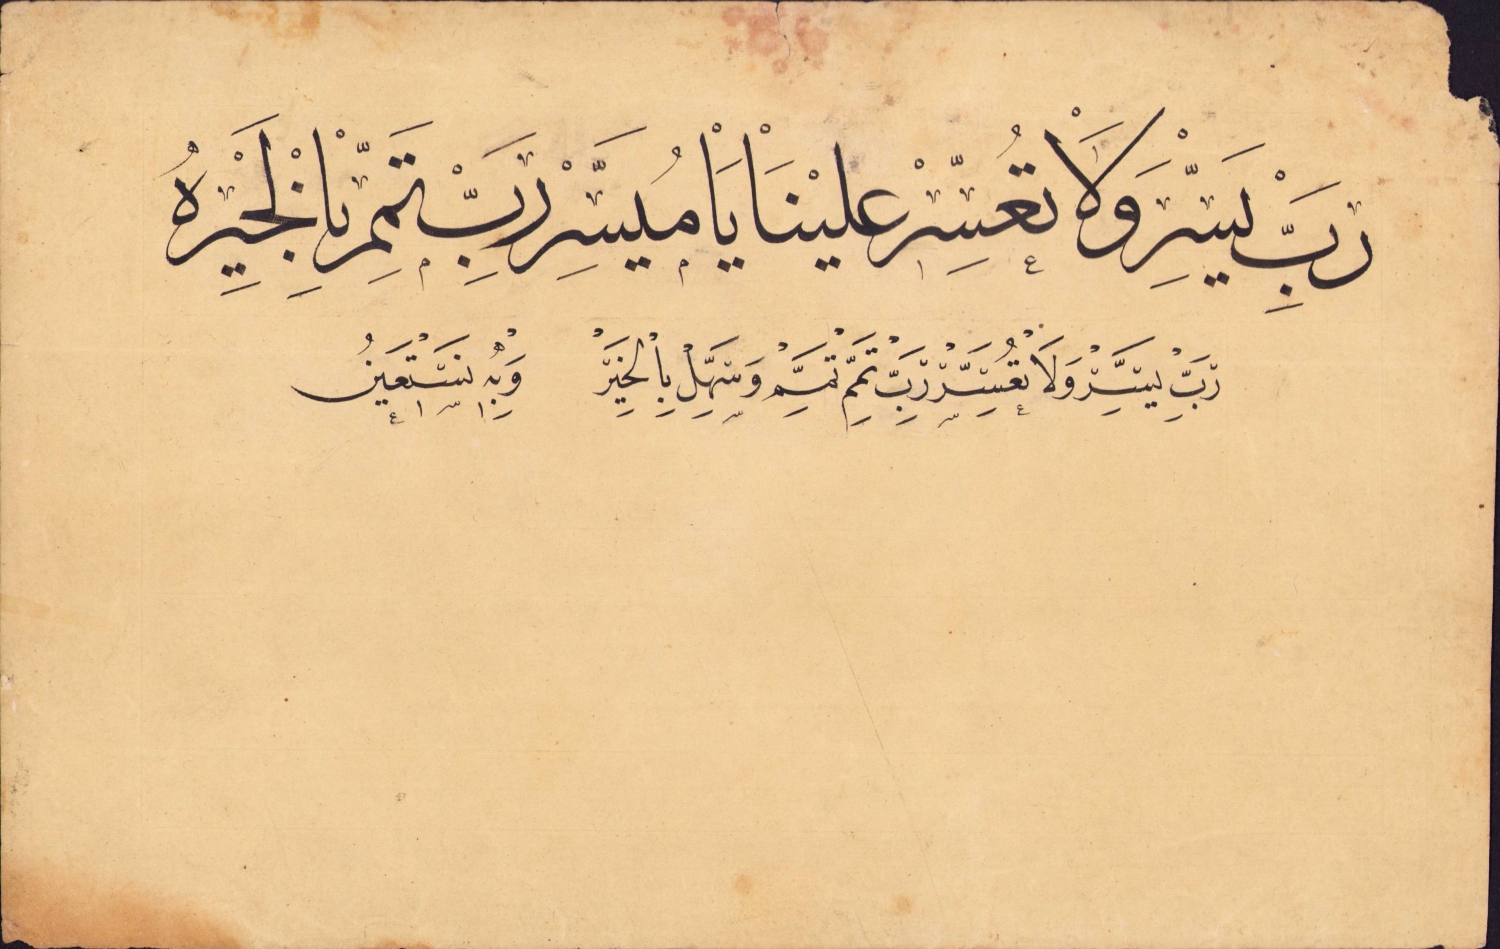 رَبِّ يَسِّرْ وَلَا تُعَسِّرْ عَلَيْنَا يَا مُيَسِّرْ رَبِّ تَمِّمْ بِالْخَيْرِ
رَبِّ يَسِّرْ وَلَا تُعَسِّرْ رَبِّ تَمِّمْ وَسَهِّلْ بِالْخَيْرْ وَبِهِ نَسْتَعِينُ